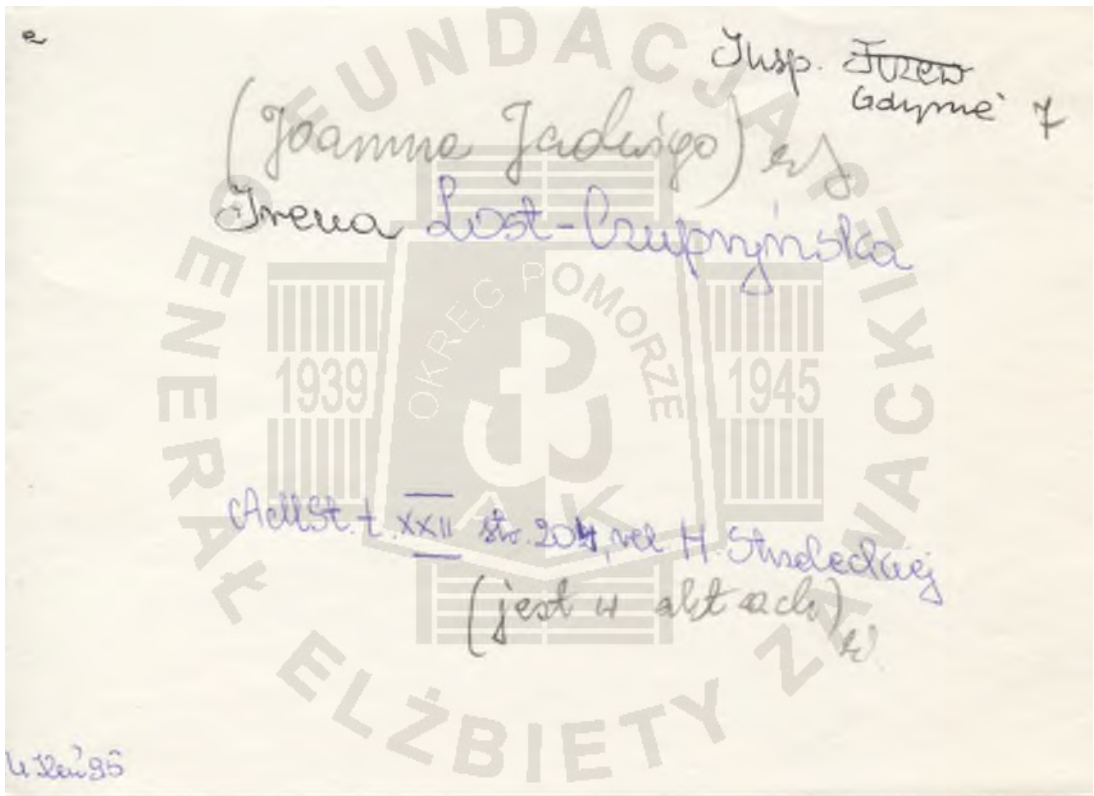 Insp. Tczew
Gdynia 7
(Joanna Jadwiga)
Irena Lost-Czupryńska
t. XXII str. 204, rel. H. Strzeleckiej
(jest w aktach)
FUNDACJA GENERAŁ ELŻBIETY ZAWACKIEJ
OKRĘG POMORZE
1939
1945
AK